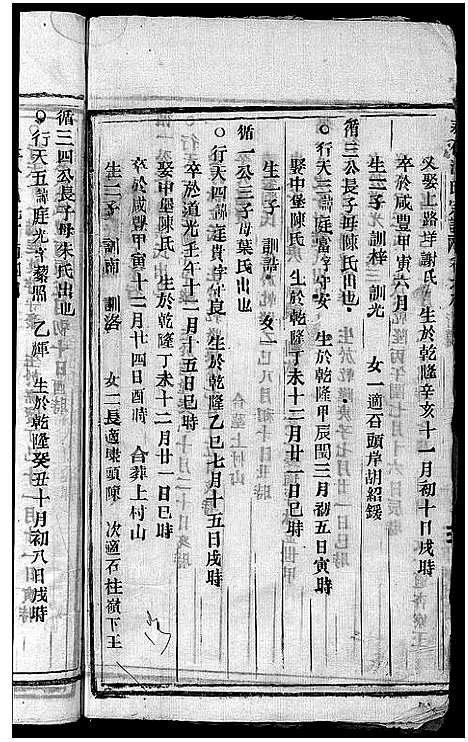 又娶上路詳謝氏 生於乾隆辛亥十一月初十日戌時
卒於咸豐甲寅六月
生二子 訓梓 三訓光 女一適石頭岸胡紹綬
循三公長子母陳氏出也
行天三諱庭富字守安 生於乾隆甲辰閏三月初五日寅時
娶中堡陳氏 生於乾隆丁未十二月廿一日巳時
生一子 訓誥 女一
循一公三子母葉氏出也
行天四諱庭貴字作良 生於乾隆乙巳七月十五日戌時
卒於道光壬午十二月十五日巳時
娶中堡陳氏 生於乾隆丁未十二月廿一日巳時
卒於咸豐甲寅十二月廿四日酉時 合葬上村山
生二子 訓南 訓洛 女二長適塘頭陳 次適石柱嶺下王
循三四公長子母朱氏出也
行天五諱庭光字藜照 乙輝 生於乾隆癸丑十月初八日戌時